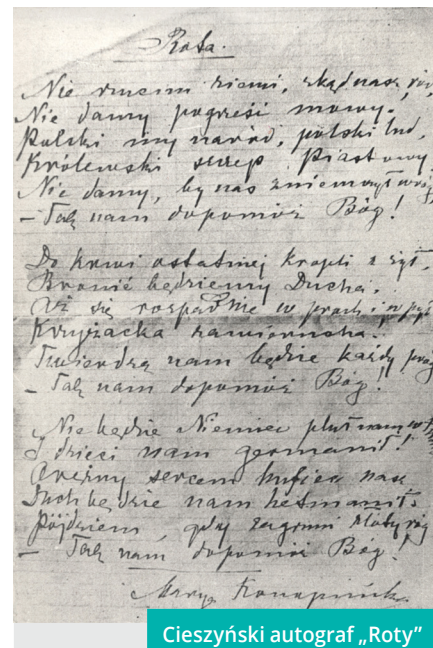 Rota.
Nie rzucim ziemi, skąd nasz ród,
Nie damy pogrześć mowy.
Polski my naród, polski lud,
Królewski szczep Piastowy
Nie damy, by nas zniemczył wróg
– Tak nam dopomóż Bóg!
Do krwi ostatniej kropli z żył,
Bronić będziemy Ducha,
Aż się rozpadnie w proch i w pył
Krzyżacka zawierucha.
Twierdzą nam będzie każdy próg
– Tak nam dopomóż Bóg!
Nie będzie Niemiec pluł nam w
I dzieci nam germanił!
Orężny sercem hufiec nasz
Duch będzie nam hetmanił.
Pójdziem, gdy zagrzmi złoty róg
– Tak nam dopomóż Bóg!
Marya Konopnicka
Cieszyński autograf „Roty”